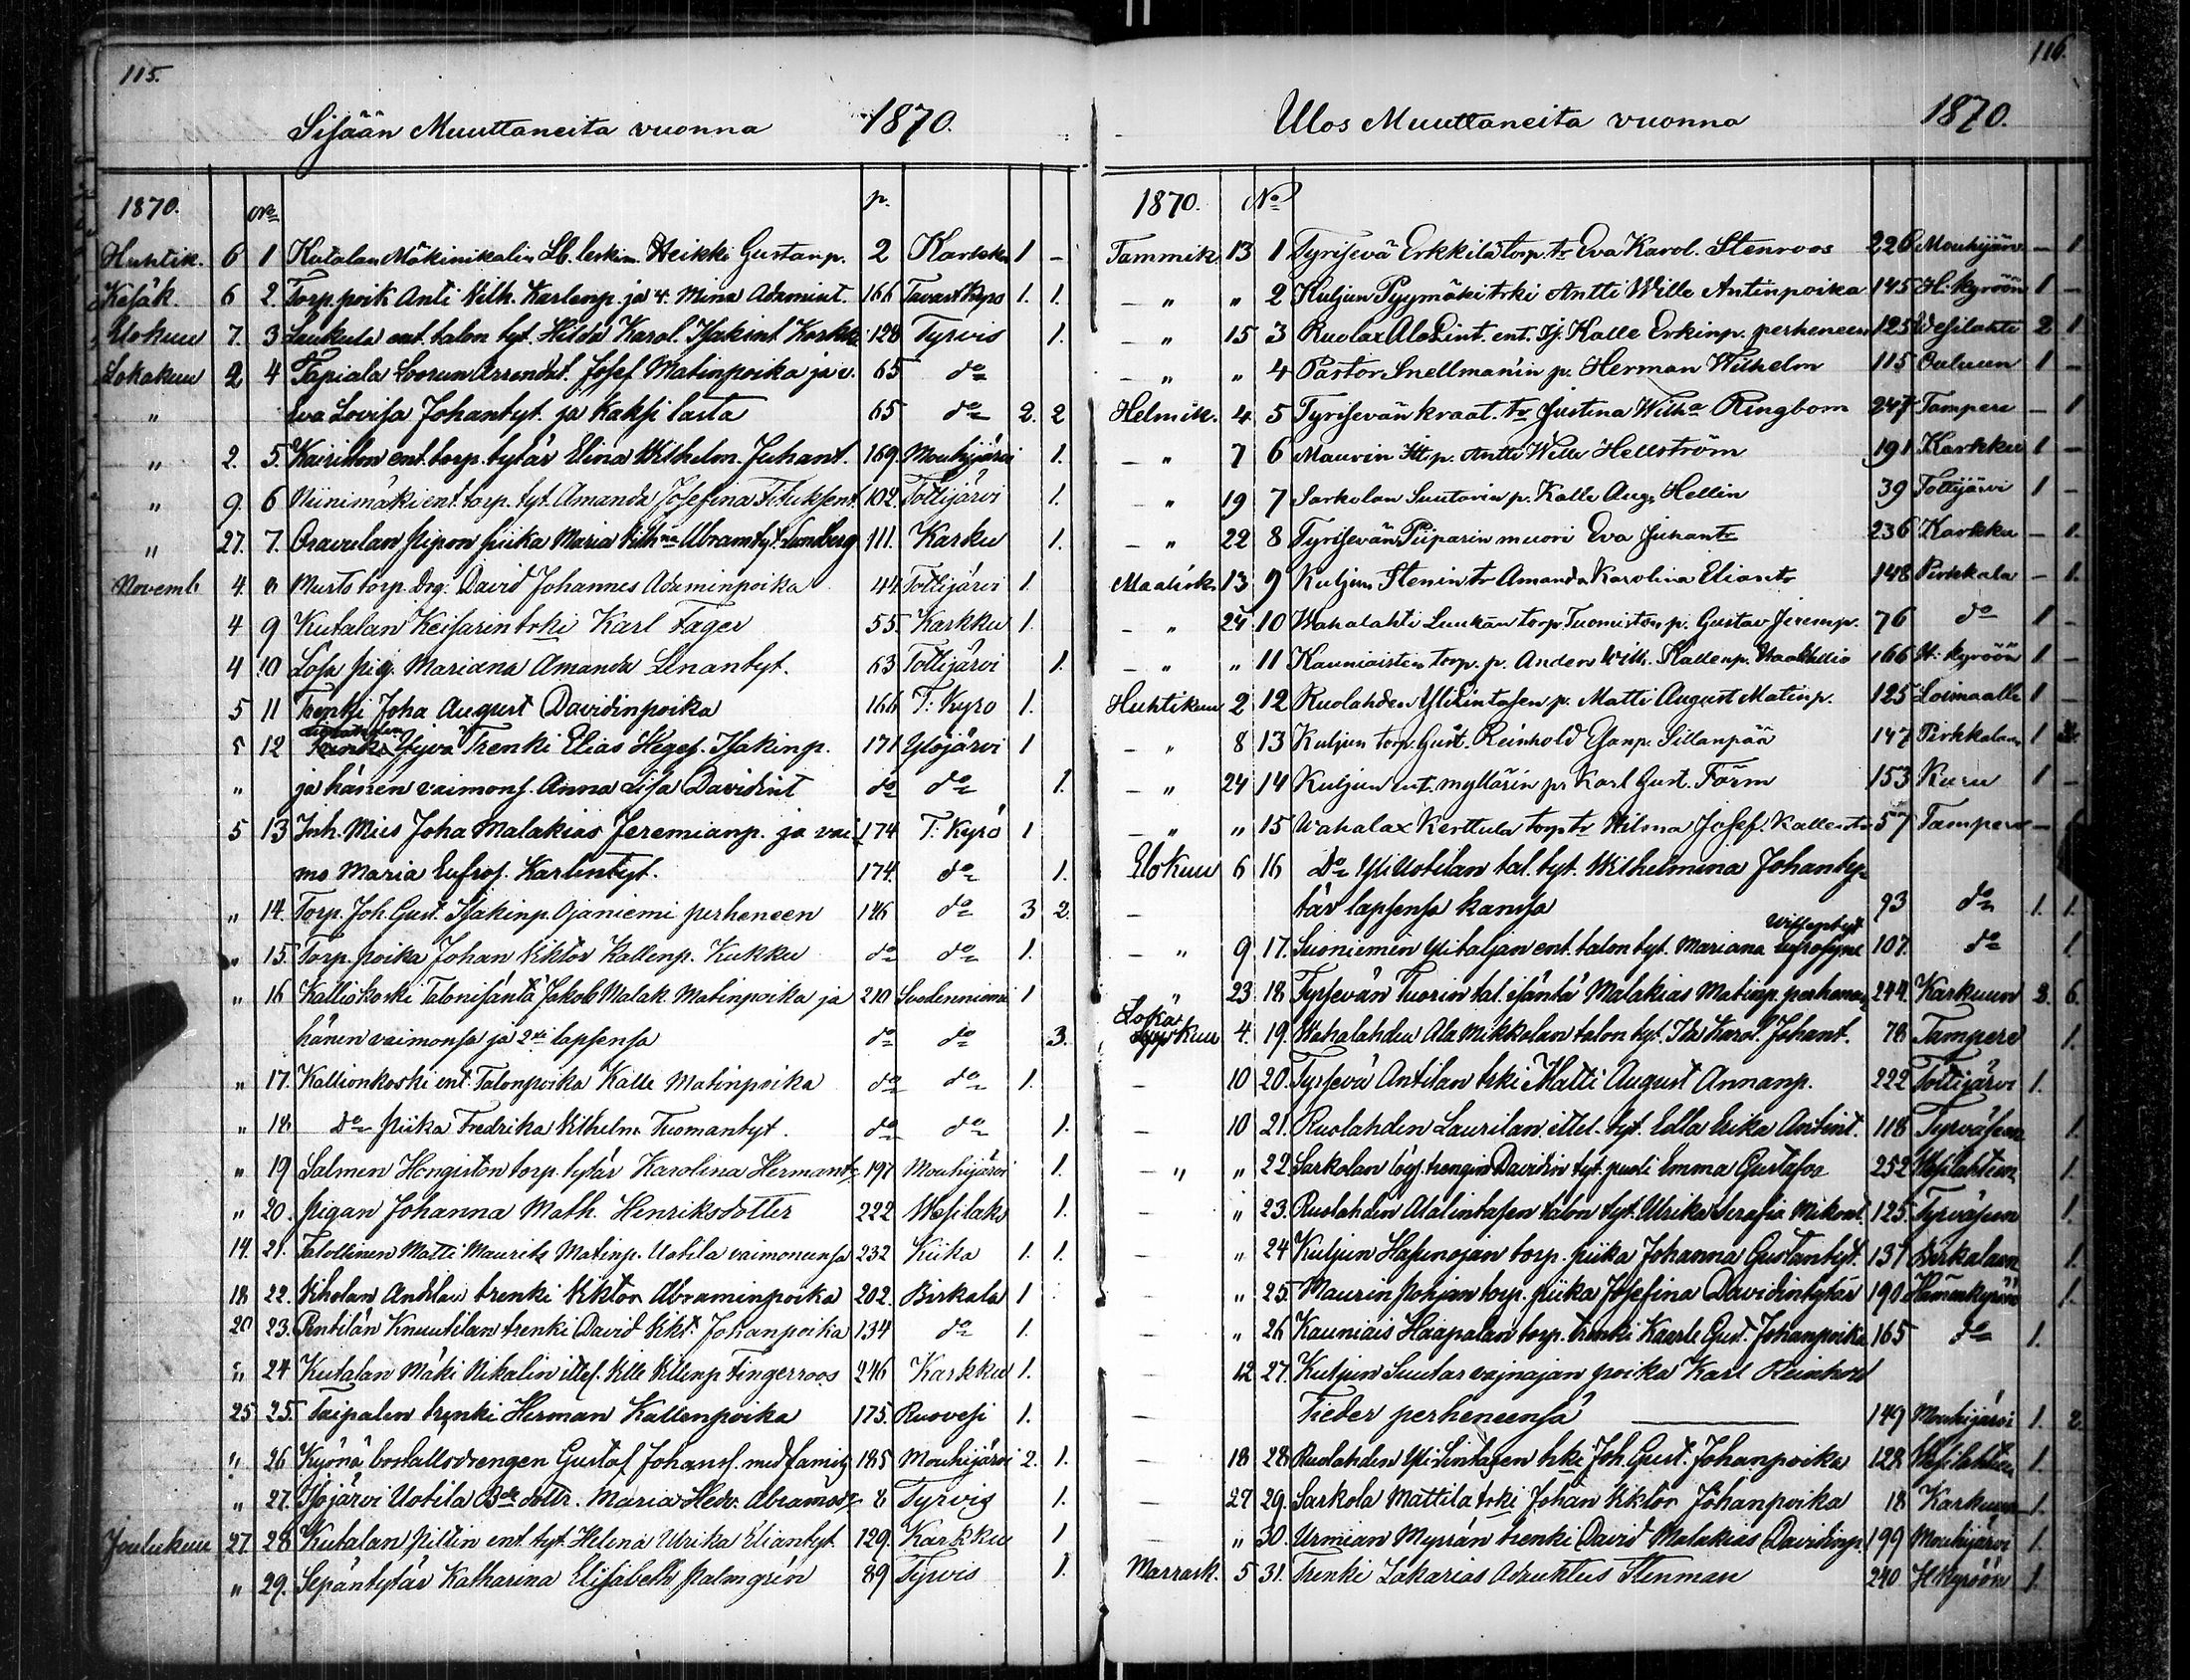 115.
Sisään Muuttaneita vuonna 1870.
1870. No p.
Huhtik. 6 1 Kutalan Mäkinikalin Lb. lesken Heikki Gustanp. 2 Karkku 1 -
Kesäk. 6 2. Torp. poik Anti Vilh. Karlenp. ja v. Mina Adamint. 166 Tavast Kyro 1. 1.
Elokuu 7. 3 Laukula ent. talon tyt. Hilda Karol. Isakint. 128 Tyrvis 1.
Lokakuu 2 4 Tapiala Arrendat. Josef Matinpoika ja v. 65 do
" Eva Lovisa Johantyt. ja kaksi lasta 65 do 2. 2
" 2. 5. ent. torp. tytär Elina Wilhelm. Juhant. 169. Mouhijärvi 1.
" 9. 6 Niinimäki ent. torp. tyt. Amanda Josefina 102. Tottijärvi 1.
" 27. 7. Oravalan piika Maria Vilhna Abramtyt. Lunberg 111. Karku 1.
Novemb 4. 8 torp. Drg. David Johannes Adaminpoika 44. Tottijärvi 1.
4 9 Kutalan Keisarin trki Karl Fager 55. Karkku 1.
4 10 pig. Mariana Amanda Linantyt. 63 Tottijärvi 1.
5 11 Trenki Joha August Davidinpoika 166 T: Kyro 1.
5 12 Trenki Elias Isakinp. 171 Ylöjärvi 1
" ja hänen vaimons. Anna Lisa Davidint do do 1.
5 13 Inh. Mies Joha Malakias Jeremianp. ja vai- 174 T: Kyrö 1
mo Maria Eufros. Karlentyt. 174. do 1.
" 14. Torp. Joh. Gust. Isakinp. Ojaniemi perheneen 146 do 3 2.
" 15. Torp. poika Johan Viktor Kallenp. Kukku do do 1.
" 16 Kalliokoski Talonisäntä Jakob Malak. Matinpoika ja 210 Suodenniemi 1
hänen vaimonsa ja 2 lapsensa do do 3.
" 17. Kallionkoski ent. Talonpoika Kalle Matinpoika do do 1.
" 18 Do piika Fredrika Vilhelm. Tuomantyt. do do 1.
" 19 Salmen Hongiston torp. tytär Karolina Hermant. 197 Mouhijärvi 1.
" 20. pigan Johanna Math. Henriksdotter 222 Wesilaks 1.
14. 21. Talollinen Matti Maurits Matinp. Uotila vaimonensa 232 Kiika 1. 1.
18 22. trenki Viktor Abraminpoika 202. Birkala 1
20 23. Pentilän Knuutilan trenki David Vikt. Johanpoika 134 do 1.
" 24 Kutalan Mäki Nikalin ittel. Ville Villenp Fingerroos 246 Karkku 1.
25 25. Taipalen trenki Herman Kallenpoika 175. Ruovesi 1.
" 26 Kyönä bostallsdrengen Gustaf Johans. med familj 185 Mouhijärvi 2. 1.
" 27. Isojärvi Uotila dottr. Maria Hedv. Abramsdr 8 Tyrvis 1.
Joulukuu 27. 28 Kutalan ent. tyt. Helena Ulrika Eliantyt. 129. Karkku 1
" 29. Sepäntytär Katharina Elisabeth Palmgrén 89 Tyrvis 1.
116.
Ulos Muuttaneita vuonna 1870.
1870. No
Tammik. 13 1 Tyrisevä Erkkilä torp. tr Eva Karol. Stenroos 226 Mouhijärv - 1
- " " 2 Kuljun Pyymäki trki Antti Wille Antinpoika 145 H. kyröön 1 -
- " 15 3 Ruolax AloLint. ent. Ij. Kalle Erkinp. perheneen 125 Wesilahti 2 1
- " " 4 Pastor Snellmanin p. Herman Wilhelm 115 Ouluun 1 -
Helmik. 4 5 Tyrisevän kraat. tr Justina Wilh:a Ringbom 247 Tampere - 1
- " 7 6 Maurin Itp. Antti Wille Hellström 191 Karkku 1 -
- " 19 7 Sarkolan Suutarin p. Kalle Aug. Hellin 39 Tottijärvi 1 -
- " 22 8 Tyrisevän Piiparin muori Eva Juhantr 236 Karkku - 1.
Maalisk. 13 9 Kuljun Stenin tr Amanda Karolina Eliantr 148 Pirkkala - 1.
- " 24. 10 Wahalahti Luukan torp. Tuomiston p. Gustav Jeremp. 76 do 1 -
- " " 11 Kauniaisten torp. p. Anders Wilh. Kallenp. 166 H: kyröön 1 -
Huhtikuu 2 12 Ruolahden YliLintusen p. Matti August Matinp. 125 Loimaalle 1 -
- " 8 13 Kuljun torp. Gust. Reinhold Esanp. Sillanpää 147 Pirkkalan 1
- " 24 14 Kuljun ent. myllärin p: Karl Gust. Förm 153 Kuru 1 -
- " " 15 Wahalax Kerttula torp tr Hilma Josef. Kallentr 57 Tampere - 1
Elokuu 6 16 Do YliUotilan tal. tyt. Wilhelmina Johanty-
- tär lapsensa kansa 93 do 1. 1.
- " 9 17. Suoniemen Ylitaljan ent. talon tyt. Mariana Eufrosyne Willenptyt 107. do 1.
" 23 18. Tyrsevän Tuorin tal. isäntä Malakias Matinp. perheneen 244. Karkuun 3. 6.
Lokakuu 4. 19. Wahalahden Ala Mikkolan talon tyt. Ida Karol. Johant. 78 Tampere 1.
- 10 20. Tyrsevä Antilan trki Matti August Annanp. 222 Tottijärvi 1.
- 10 21. Ruolahden Laurilan ittel. tyt. Edla Erika Antint. 118 Tyrväsen 1.
- " " 22 Sarkolan trengin Davidin tyt. puoli Emma Gustafva 252 Wesilahteen 1.
- " 23. Ruolahden Alalintusen talon tyt. Ulrika Serafia Mikont. 125. Tyrväseen 1.
- " 24 Kuljun Hasunojan torp. piika Johanna Gustantyt. 137 Birkalaan 1.
- " 25. Maurin Pohjan torp. piika Josefina Davidintytär 190 Hämenkyröön 1.
- " 26 Kauniais Haapalan torp. trenki Kaarle Gust. Johanpoika 165 do 1.
- 12 27. Kuljun Suutar vajnajan poika Karl Reinhold
- Fieder perheneensä 149 Mouhijärvi 1. 2
- 18 28 Ruolahden Yli-Lintusen trki Joh. Gust. Johanpoika 128. Wesilahteen 1.
- 27 29. Sarkola Mattila trki Johan Viktor Johanpoika 18 Karkuun 1.
- " 30. Urmian Myrrän trenki David Malakias Davidinp. 199 Mouhijärvi 1.
Marrask. 5 31. Trenki Zakarias Aduktus Stenman 240 H. Kyröön 1.